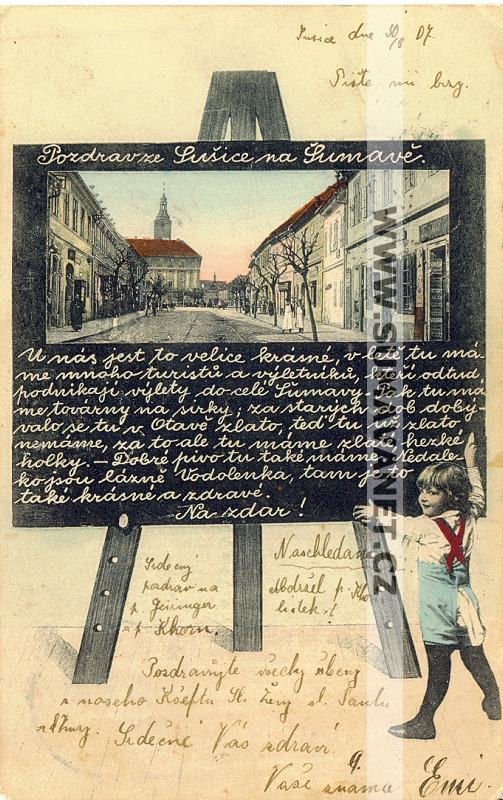 Sušice dne 30/8 07.
Pište mi brzy.
Pozdrav ze Sušice na Šumavě.
U nás jest to velice krásné, v létě tu má-
me mnoho turistů a výletníků, kteří odtud
podnikají výlety do celé Šumavy. tu má
me továrny na sirky; za starých dob dobý-
valo se tu v Otavě zlato, teď tu již zlato
nemáme, za to ale tu máme zlaté hezké
holky. — Dobré pivo tu také máme. Nedale-
ko jsou lázně Vodolenka, tam je to
také krásné a zdravé.
Na zdar!
Srdečný
pozdrav na
p. Geiringer
a p. Khorn.
Naschledanou
Obdržel p.
lístek?
Pozdravujte všecky
z našeho
Srdečně Vás zdraví
Vaše známá Emi.
WWW.SUMAVANET.CZ